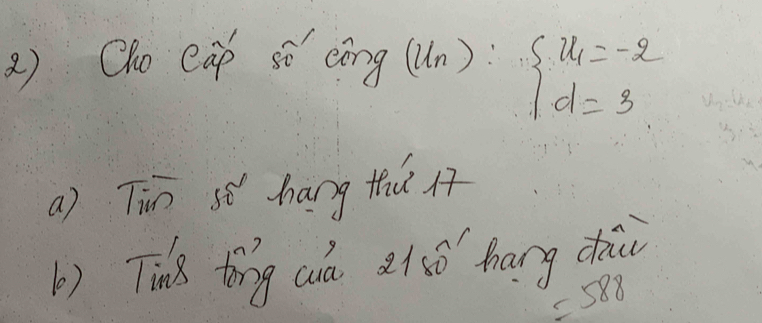 2) Cho cấp số cộng (Un): { U1 = -2
d = 3
a) Tìm số hạng thứ 17
b) Tính tổng của 21 số hạng đầu
= 588